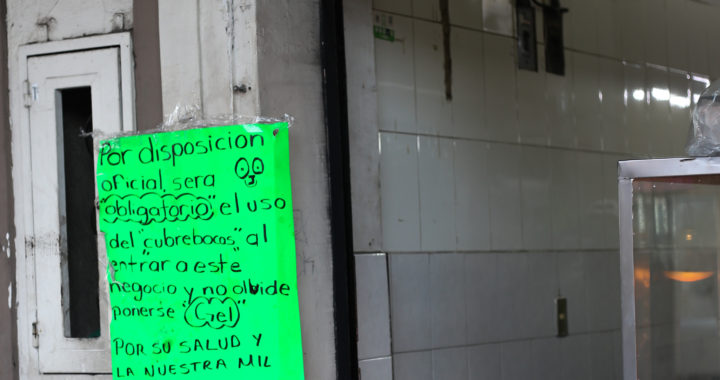 Por disposicion
oficial, sera
"obligatorio", el uso
del "cubrebocas", al
entrar a este
negocio y no olvide
ponerse "Gel"
POR SU SALUD Y
LA NUESTRA MIL